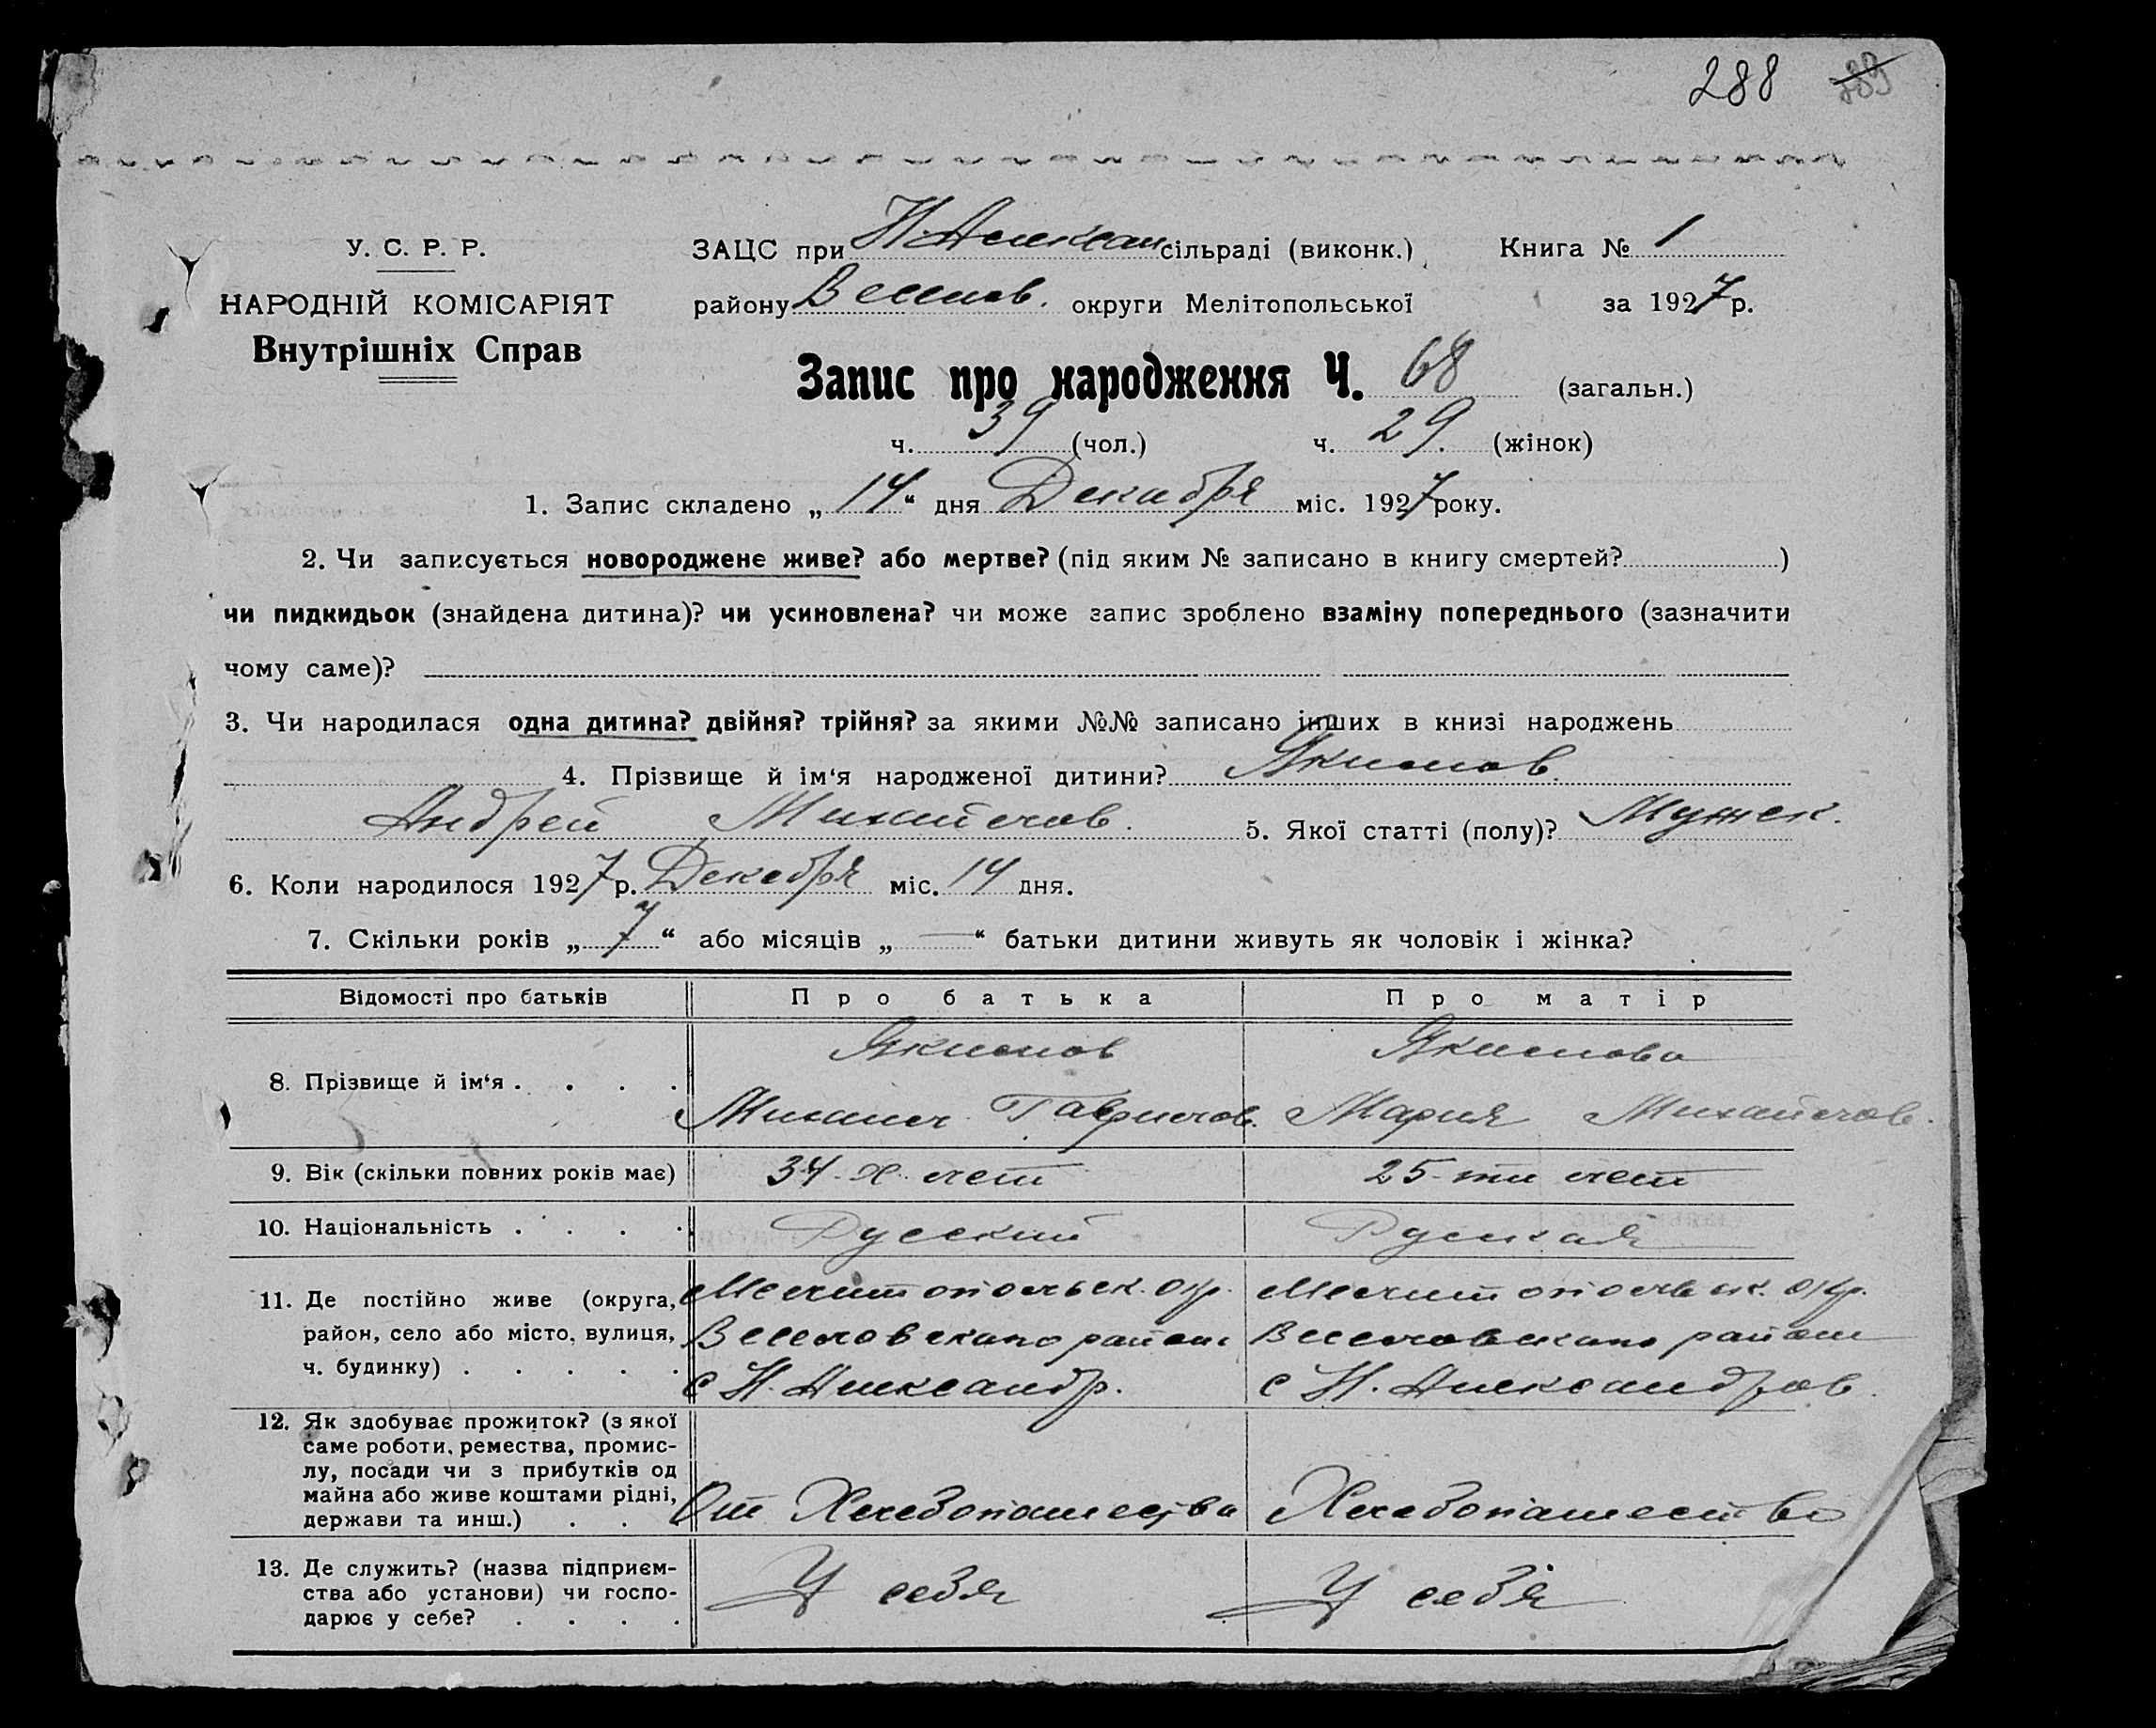 288 289
У. С. Р. Р.
НАРОДНІЙ КОМІСАРІЯТ
Внутрішніх Справ
ЗАЦС при Н Алексан сільраді (виконк.) Книга № 1
району Веселов. округи Мелітопольської за 1927 р.
Запис про народження Ч. 68 (загальн.)
ч. 39 (чол.) ч. 29. (жінок)
1. Запис складено „14“ дня Декабря міс. 1927 року.
2. Чи записується новороджене живе? або мертве? (під яким № записано в книгу смертей? )
чи пидкидьок (знайдена дитина)? чи усиновлена? чи може запис зроблено взаміну попереднього (зазначити
чому саме)?
3. Чи народилася одна дитина? двійня? трійня? за якими №№ записано інших в книзі народжень
4. Прізвище й ім‘я народженої дитини? Якимов
Андрей Михайлов. 5. Якої статті (полу)? Мужск.
6. Коли народилося 1927 р. Декабря міс. 14 дня.
7. Скільки років „7“ або місяців „—“ батьки дитини живуть як чоловік і жінка?
Відомості про батьків Про батька Про матір
8. Прізвище й ім‘я . . . . Якимов Якимова
Михаил Гаврилов. Мария Михайлов.
9. Вік (скільки повних років має) 34-х лет 25-ти лет
10. Національність . . . . Русский Руская
11. Де постійно живе (округа, Мелитопольск. окр. Мелитопольск. окр.
район, село або місто, вулиця, Веселовскаго района Веселовскаго района
ч. будинку) . . . . . с Н. Александр. с Н. Александров.
12. Як здобуває прожиток? (з якої
саме роботи, ремества, промис-
лу, посади чи з прибутків од
майна або живе коштами рідні, От Хлебопашества Хлебопашество
держави та инш.) . . .
13. Де служить? (назва підприєм-
ства або установи) чи госпо- У себя У себя
дарює у себе? . . . .